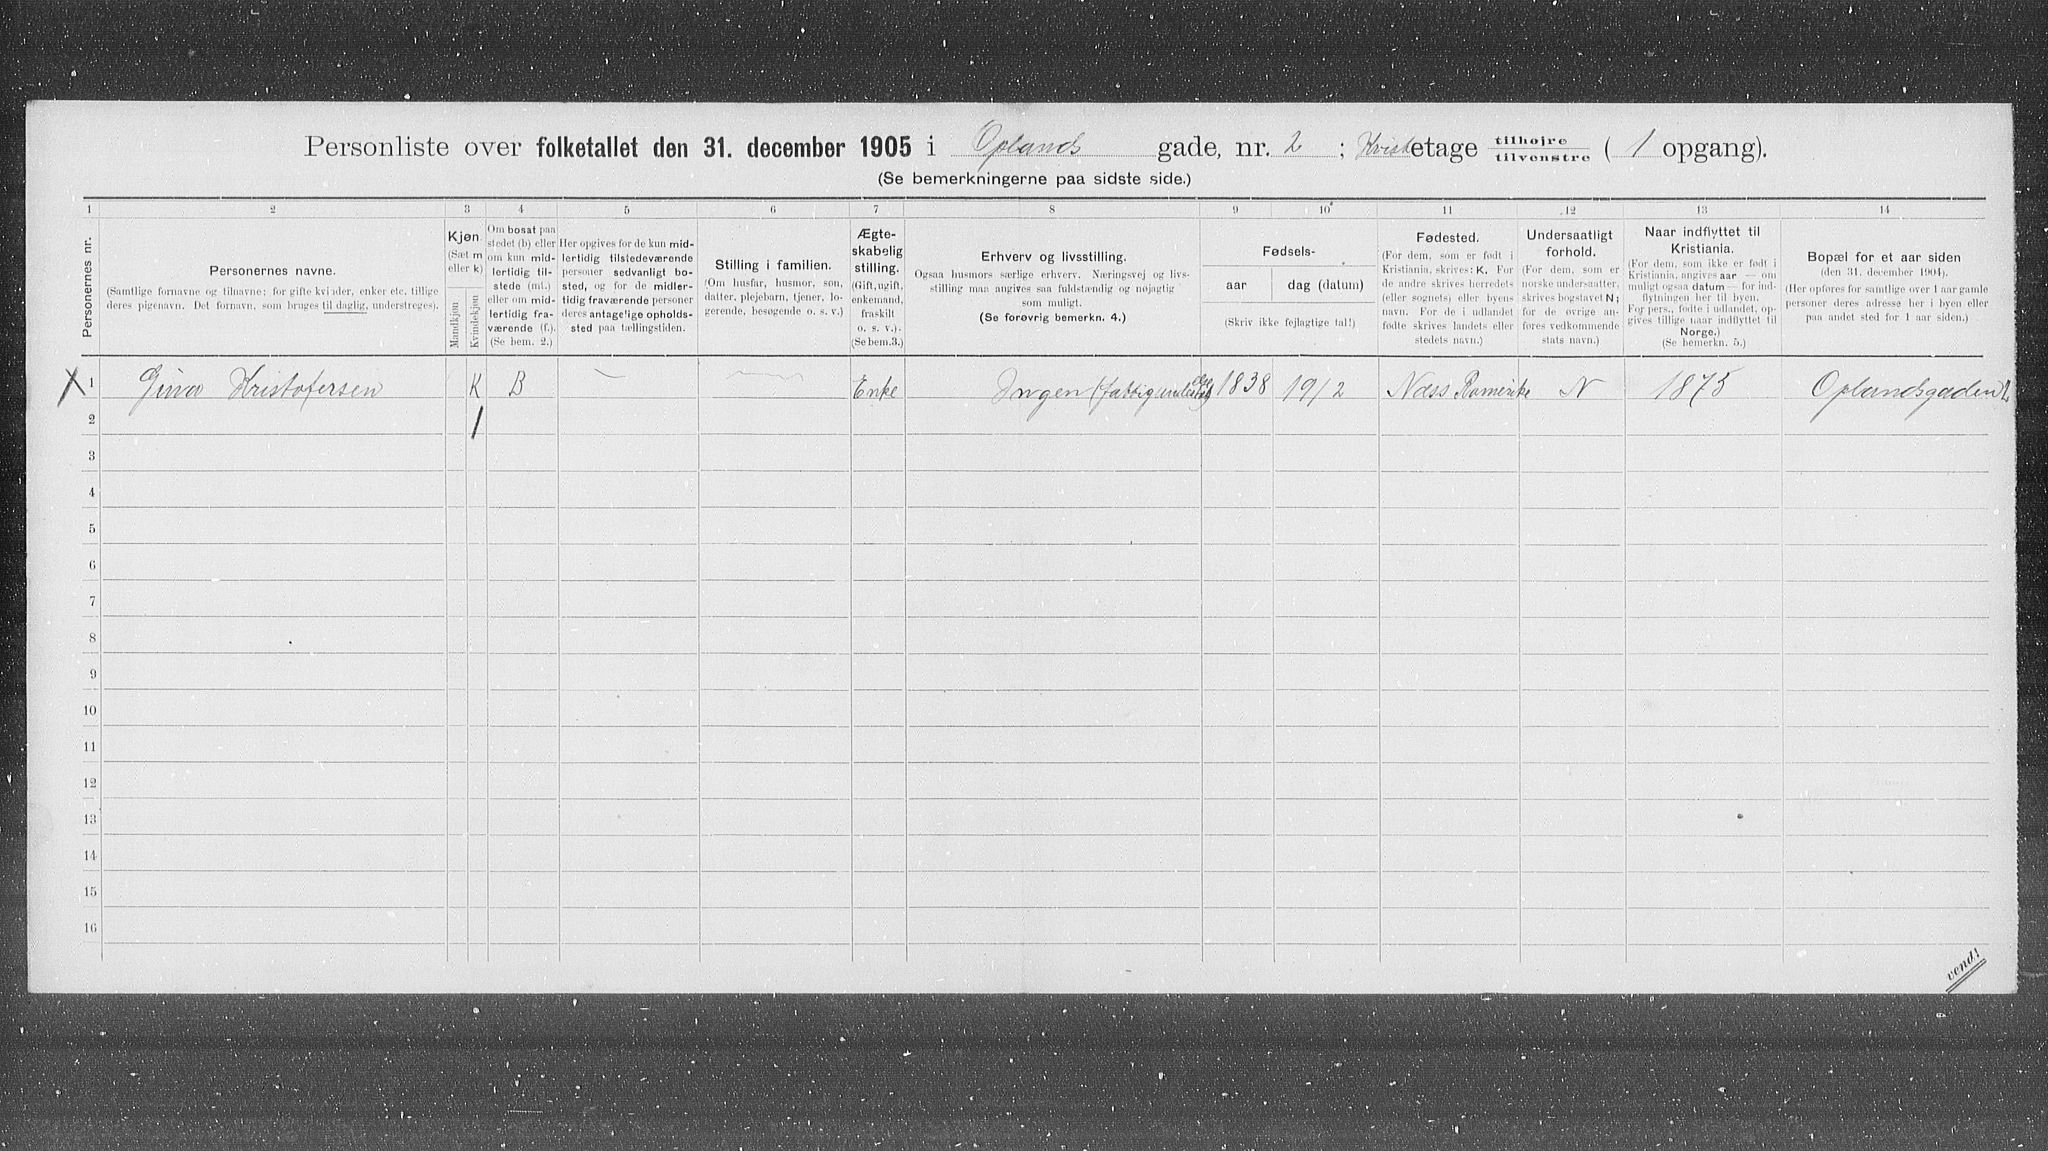 Personliste over folketallet den 31. december 1905 i Oplands gade, nr. 2 ; Kvist etage tilhøjre tilvenstre ( 1 opgang).
(Se bemerkningerne paa sidste side.)
1 2 3 4 5 6 7 8 9 10 11 12 13 14
Personernes nr.
Personernes navne.
(Samtlige fornavne og tilnavne; for gifte kvinder, enker etc. tillige
deres pigenavn. Det fornavn, som bruges til daglig, understreges).
Kjøn.
(Sæt m
eller k)
Mandkjøn
Kvindekjøn
Om bosat paa
stedet (b) eller
om kun mid-
lertidig til-
stede (mt.)
eller om mid-
lertidig fra-
værende (f.).
(Se bem. 2.)
Her opgives for de kun mid-
lertidig tilstedeværende
personer sedvanligt bo-
sted, og for de midler-
tidig fraværende personer
deres antagelige opholds-
sted paa tællingstiden.
Stilling i familien.
(Om husfar, husmor, søn,
datter, plejebarn, tjener, lo-
gerende, besøgende o. s. v.)
Ægte-
skabelig
stilling.
(Gift, ugift,
enkemand,
fraskilt
o. s. v.).
(Se bem.3.)
Erhverv og livsstilling.
Ogsaa husmors særlige erhverv. Næringsvej og livs-
stilling maa angives saa fuldstændig og nøjagtig
som muligt.
(Se forøvrig bemerkn. 4.)
Fødsels-
aar
dag (datum)
(Skriv ikke fejlagtige tal!)
Fødested.
(For dem, som er født i
Kristiania, skrives: K. For
de andre skrives herredets
(eller sognets) eller byens
navn. For de i udlandet
fødte skrives landets eller
stedets navn.)
Undersaatligt
forhold.
(For dem, som er
norske undersaatter,
skrives bogstavet N;
for de øvrige an-
føres vedkommende
stats navn.)
Naar indflyttet til
Kristiania.
(For dem, som ikke er født i
Kristiania, angives aar — om
muligt ogsaa datum — for ind-
flytningen her til byen.
For pers., fødte i udlandet, op-
gives tillige naar indflyttet til
Norge.)
(Se bemerkn. 5.)
Bopæl for et aar siden
(den 31. december 1904).
(Her opføres for samtlige over 1 aar gamle
personer deres adresse her i byen eller
paa andet sted for 1 aar siden.)
X 1 Gina Kristofersen K B – Enke Ingen 1838 19/2 Næss Romerike N 1875 Oplandsgaden 2
2 1
3
4
5
6
7
8
9
10
11
12
13
14
15
16
vend!